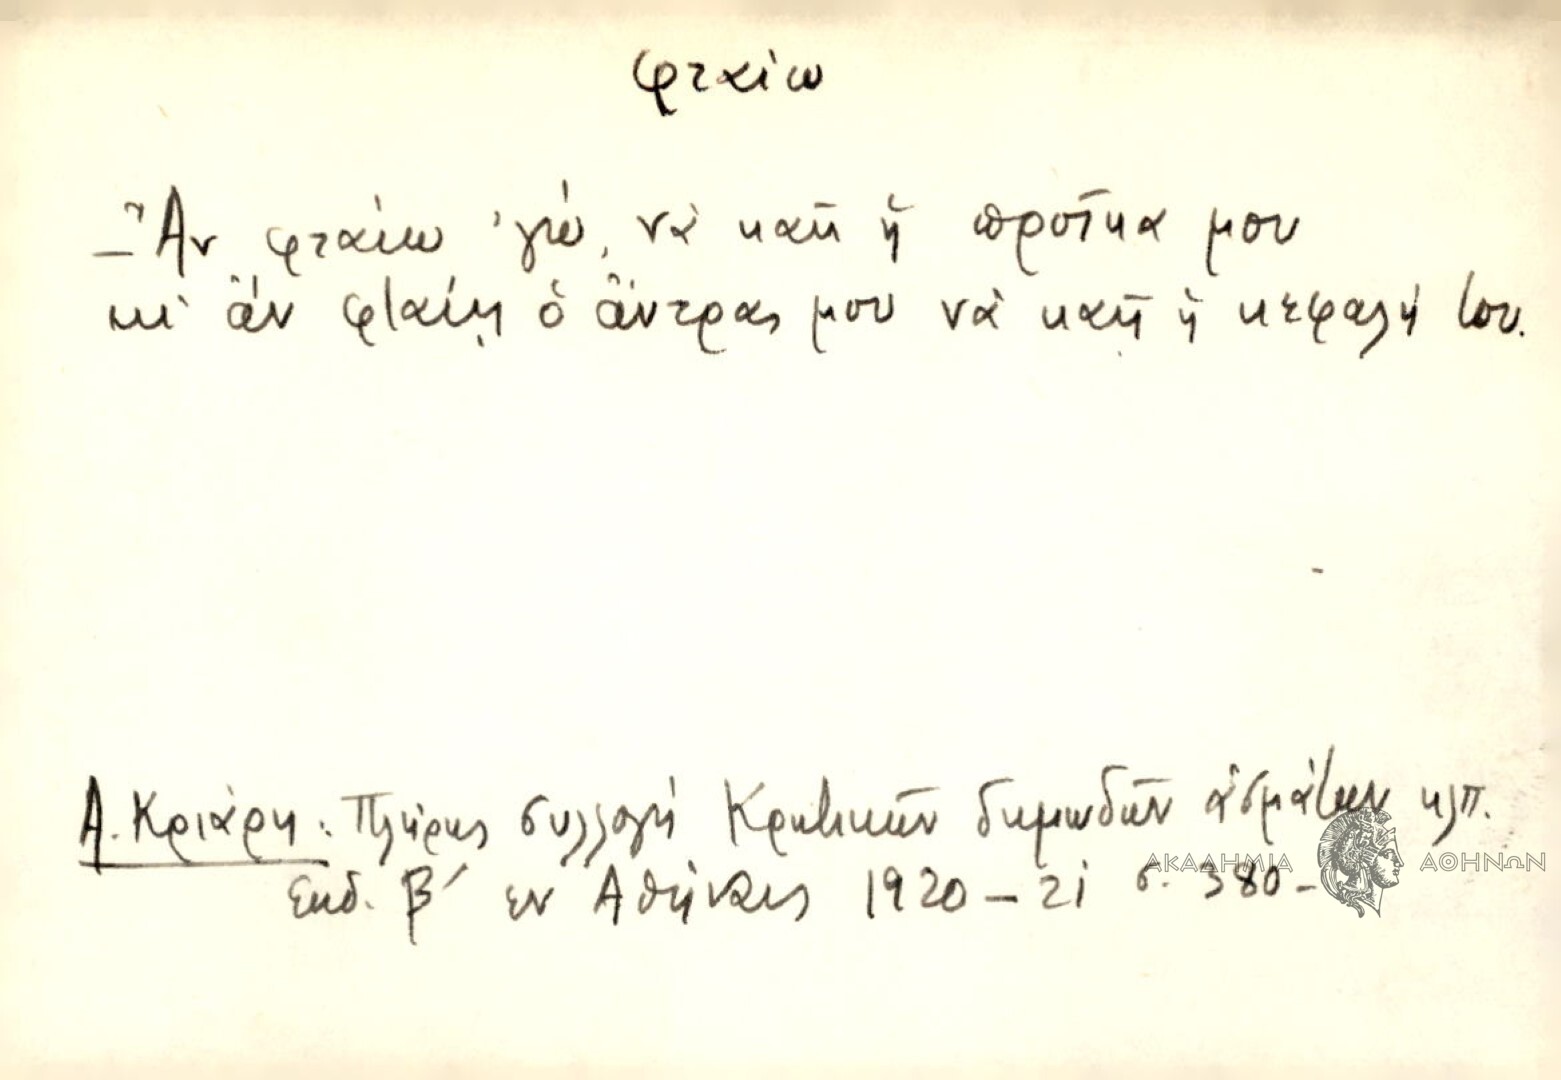 φταίω
— Ἂν φταίω 'γώ, νὰ καῆ ἡ προῖκα μου
κι' ἂν φταίῃ ὁ ἄντρας μου νὰ καῇ ἡ κεφαλή του.
Α. Κριάρη: Πλήρης συλλογή Κρητικῶν δημωδῶν ᾀσμάτων κλπ.
ἐκδ. β' εν Αθήναις 1920-21 σ. 380-
ΑΚΑΔΗΜΙΑ ΑΘΗΝΩΝ